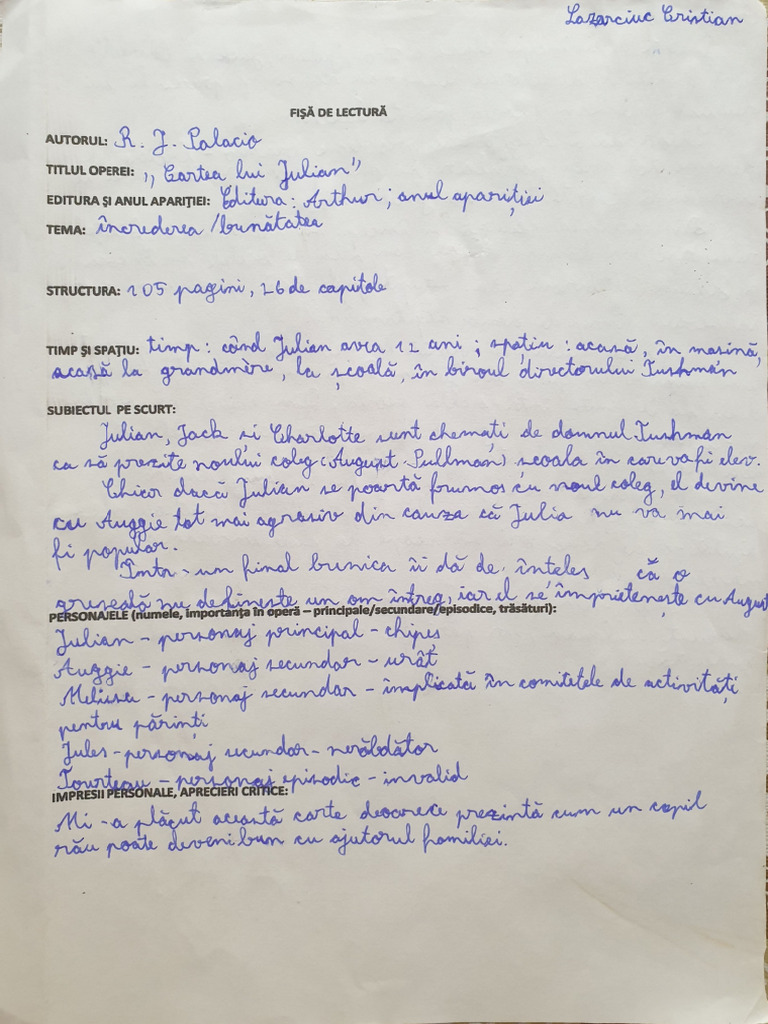 Lazarciuc Cristian
FIȘĂ DE LECTURĂ
AUTORUL: R. J. Palacio
TITLUL OPEREI: ,, Cartea lui Julian"
EDITURA ȘI ANUL APARIȚIEI: Editura: Arthur; anul apariției
TEMA: încrederea /bunătatea
STRUCTURA: 105 pagini, 26 de capitole
TIMP ȘI SPAȚIU: timp: când Julian avea 12 ani; spațiu: acasă, în mașină,
acasă la grandmère, la școală, în biroul directorului Tushman
SUBIECTUL PE SCURT:
Julian, Jack si Charlotte sunt chemați de domnul Tushman
ca să prezite noului coleg (August Pullman) școala în care va fi elev.
Chior dacă Julian se poartă frumos cu noul coleg, el devine
cu Auggie tot mai agrasiv din cauza că Julia nu va mai
fi popular.
Într-un final bunica îi dă de înțeles că o
greseală nu definește un om întreg, iar el se împrietenește cu August
PERSONAJELE (numele, importanța în operă – principale/secundare/episodice, trăsături):
Julian - personaj principal - chipeș
Auggie - personaj secundar - urât
Melissa - personaj secundar - implicată în comitetele de activități
pentru părinți
Jules - personaj secundar - nerăbdător
Tourteau - personaj episodic - invalid
IMPRESII PERSONALE, APRECIERI CRITICE:
Mi-a plăcut această carte deoarece prezintă cum un copil
rău poate deveni bun cu ajutorul familiei.